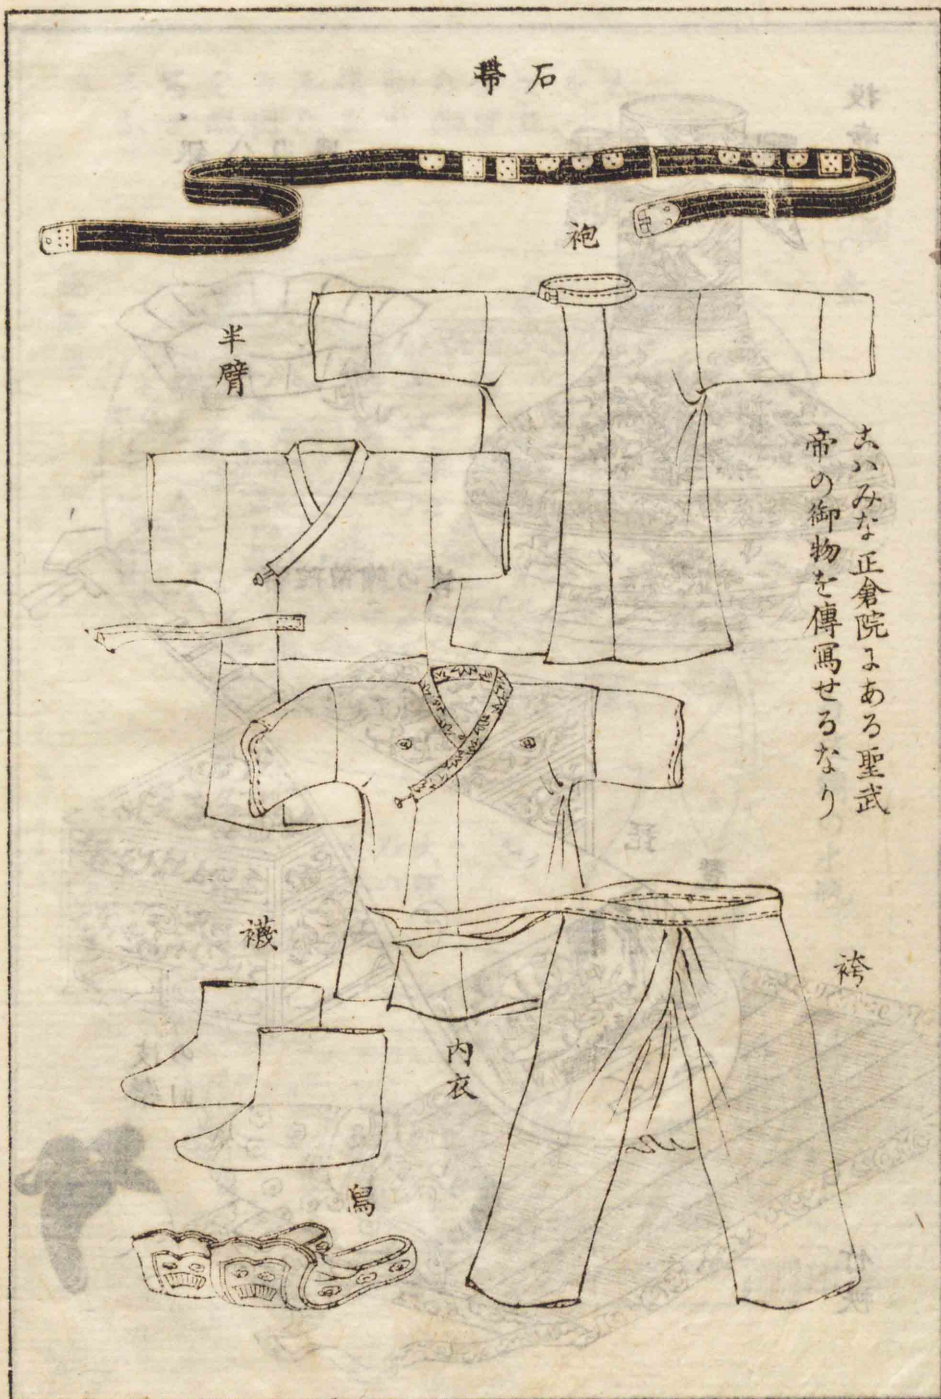 石帶
袍
半臂
こハみな正倉院にある聖武
帝の御物を傳寫せるなり
袴
襪
内衣
舃